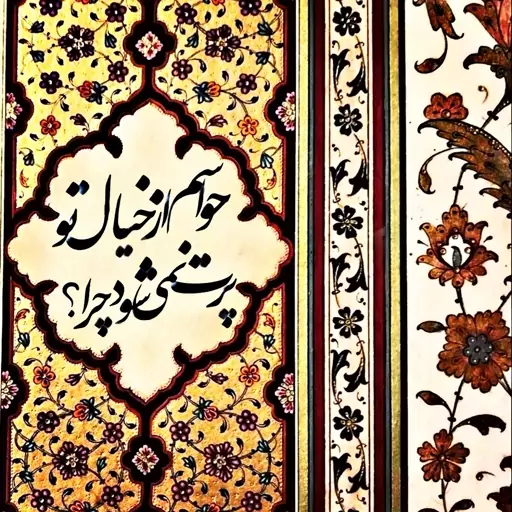 حواسم از خیال تو
پرت نمی شود چرا؟